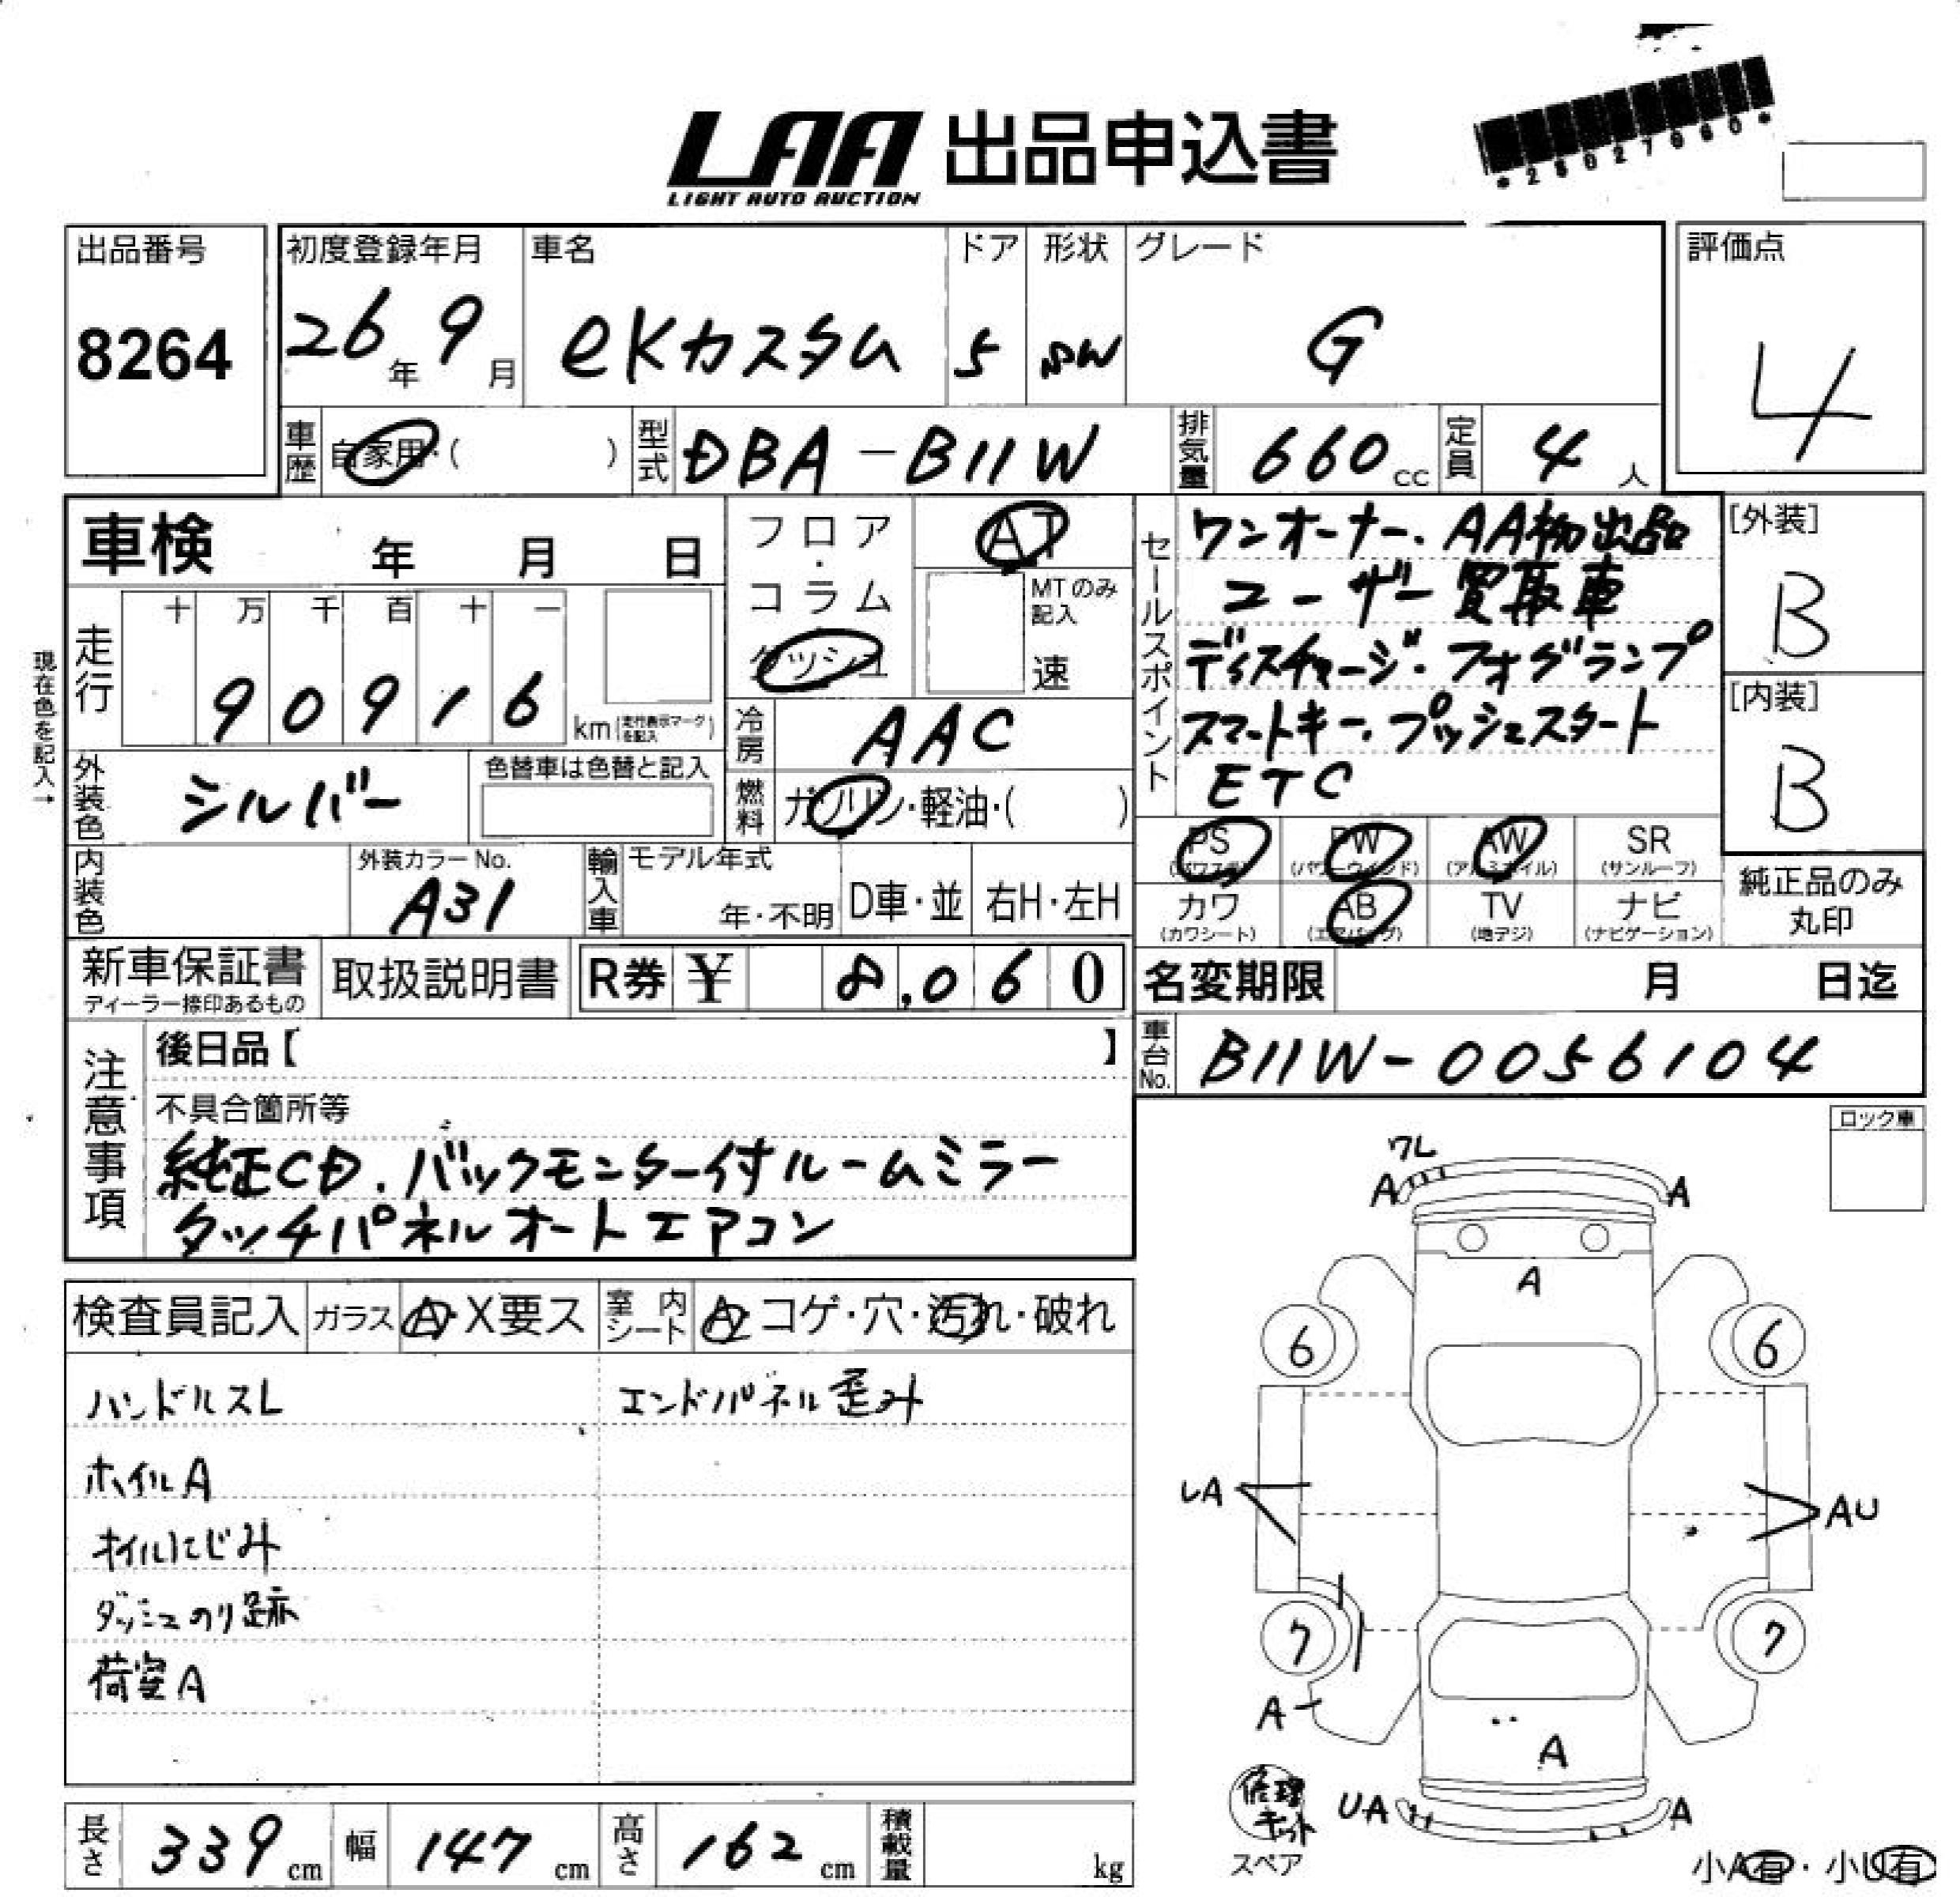 LAA 出品申込書
LIGHT AUTO AUCTION
*25027060*
出品番号
8264
初度登録年月
26年 9月
車名
eKカスタム
ドア
5
形状
SW
グレード
G
評価点
4
車歴
自家用・( )
型式
DBA-B11W
排気量
660cc
定員
4人
車検 年 月 日
現在色を記入→
走行
十 万 千 百 十 一
9 0 9 1 6
km(走行表示マークを記入)
フロア・コラム
ダッシュ
AT
MTのみ記入
速
冷房
AAC
燃料
ガソリン・軽油・( )
外装色
シルバー
色替車は色替と記入
内装色
外装カラーNo.
A31
輸入車
モデル年式
年・不明
D車・並
右H・左H
セールスポイント
ワンオーナー・AA初出品
ユーザー買取車
ディスチャージ・フォグランプ
スマートキー・プッシュスタート
ETC
[外装]
B
[内装]
B
PS
(パワステ)
PW
(パワーウインド)
AW
(アルミホイル)
SR
(サンルーフ)
カワ
(カワシート)
AB
(エアバッグ)
TV
(地デジ)
ナビ
(ナビゲーション)
純正品のみ
丸印
新車保証書
ディーラー捺印あるもの
取扱説明書
R券 ¥ 8,060
名変期限 月 日迄
車台No.
B11W-0056104
注意事項
後日品【 】
不具合箇所等
純正CD.バックモニター付ルームミラー
タッチパネルオートエアコン
ロック車
検査員記入
ガラス
A・X要ス
室内シート
A・コゲ・穴・汚れ・破れ
ハンドルスレ
エンドパネル歪み
ホイルA
オイルにじみ
ダッシュのり跡
荷室A
ワレ
A
A
A
6
6
LA
AU
7
7
A
A
UA
A
修理キット
スペア
小A有・小U有
長さ
339cm
幅
147cm
高さ
162cm
積載量
kg